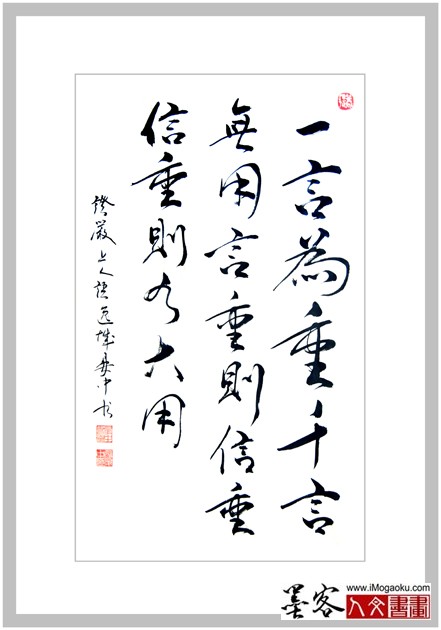 一言為重千言
無用言重則信重
信重則有大用
證嚴上人語
墨客
www.iMogaoku.com
人文書畫